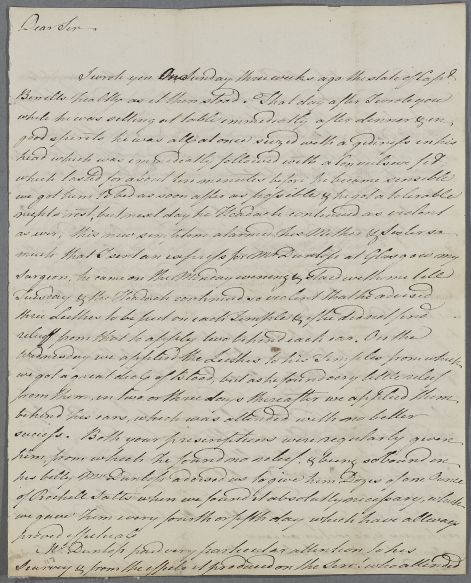 Dear Sir
I wrote you On Sunday three weeks ago the state of Capt.
Benetts health as it then stood. That day after I wrote you
while he was sitting at table immediately after dinner & in
good spirits he was all at once seized with a giddiness in his
head which was immediately followed with a convulsive fit
which lasted for about ten minutes before he became sensible
we got him to bed as soon after as possible & he got a tolerable
nights rest, but next day the Headach continued as violent
as ever, this new simptom alarmed his Mother & Sister so
much that I sent an express for Mr Dunlop at Glasgow my
Surgeon, he came on the Monday evening & staid with me till
Tuesday & the Headach continued so violent that he advised
three Leeches to be put on each Temple & if he did not find
relieff from that to apply two behind each ear. On the
Wednesday we applied the Leeches to his Temples from which
we got a great deale of blood, but as he found very little relief
from them, in two or three days thereafter we applied them
behind his ears, which was attended with no better
success. Both your prescriptions were regularly given
him, from which he found no relief. & being so bound in
his belly Mr Dunlop advised us to give him Doses of an Ounce
of Rochell Salts when we found it absolutely necessary, which
we gave him every fourth or fifth day which have allways
proved effectual.
Mr. Dunlop paid very particular attention to his
Scurvey & from the effects it produced on the Sire who attended